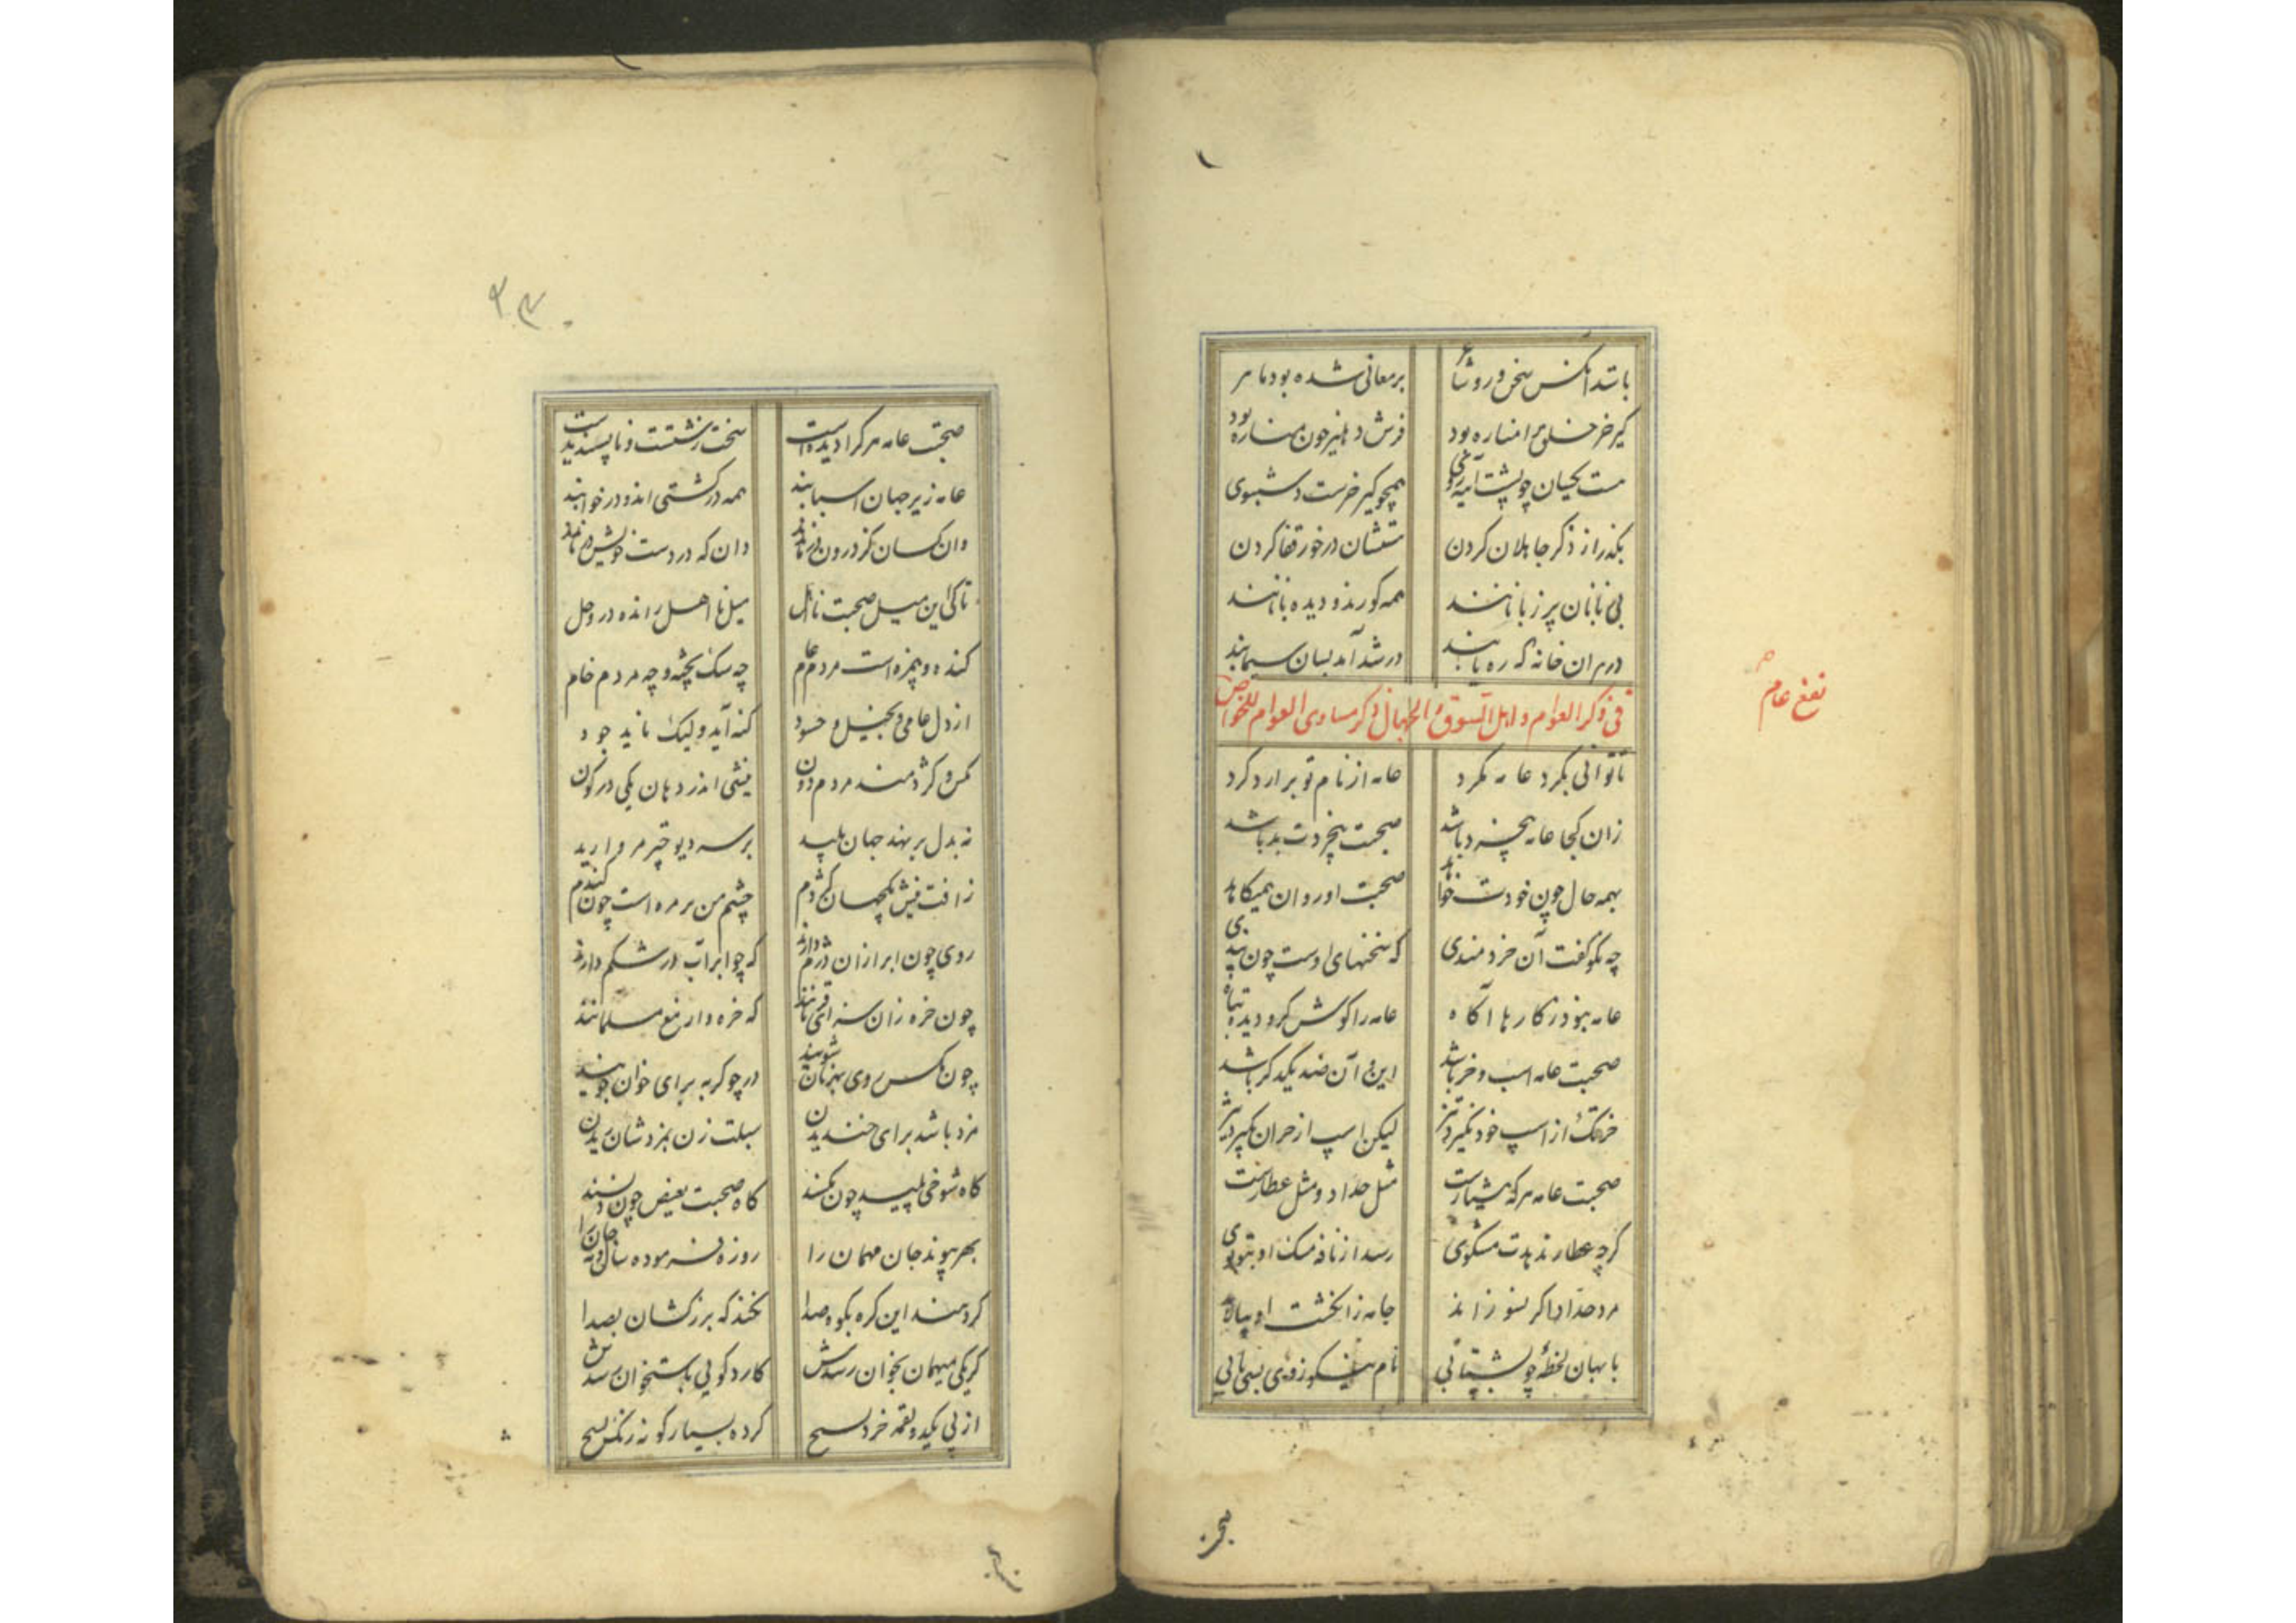 باشد آنکس سخن‌ور و شاعر بر معانی شده بود ماهر
کیر خر خلق را مناره بود فرش دهلیز چون مناره بود
همچو کیر خرست
بگذر از ذکر جاهلان کردن ستشان درخور قفا کردن
بی نانان پر زبانانند همه کورند و دیده بانانند
در هر ان خانه که ره یابند در شد آمد بسان سیمابند
فی ذکر العوام و اهل السوق و الجهال ذکر مساوی العوام للخواص
نفع عام
تا توانی بگرد عامه مگرد عامه از نام تو برارد گرد
زان کجا عامه بیخرد باشد صحبت بیخردت بد باشد
بهمه حال چون خودت خواهد صحبت او روان همیکاهد
چه نکو گفت آن خردمندی که سخنهای اوست چون پندی
عامه نبود ز کارها آگاه عامه را گوش کر و دیده تباه
صحبت عامه اسب و خر باشد این و آن ضد یکدگر باشد
خر تگ از اسب خود نگیرد تیز لیکن اسپ از خران بگیرد تیز
صحبت عامه هرکه هشیارست مثل حداد و مثل عطارست
گرچه عطار ندهدت مشکوی رسد از نافه مشک او بتو بوی
مرد حداد اگر بسوزاند جامه ز انگشت او سیاه
با بهان لحظهٔ چو بشتابی نام نیکو ز وی بسی یابی
صحبت
۳۳۰
صحبت عامه هر کرا دیدست سخت زشتست و ناپسندیدست
عامه زیر جهان اسبابند همه در کشتی اند و در خوابند
وان کسان کز درون وان که در دست خویش
تا کی این میل صحبت نااهل میل نااهل رانده در وحل
کنده و بیمزه است مردم عام چه سگ پخته و چه مردم خام
از دل عامی و بخیل و حسود کنه آید ولیک ناید جود
مکس و کژدمند مردم دون نیشی اندر دهان یکی در کون
نه بدل بر نهند جهان پلید بر سر دیو خیر مروارید
ز افت نیش کژدم چشم من بر مره است چون گندم
روی چون ابر ازان درم دارند که چو ابر آب در شکم دارند
چون خره زان سزای که خره وار مسلمانند
چون مکس روی بهر نان شویند در چو گربه برای خوان جویند
مزد باشد برای خندیدن سبلت زن بمزدشان ریدن
گاه شوخی پلید چون مکسند گاه صحبت بغیض چون دنسند
بهر پیوند جان مهمان را روزه فرموده سال و مه جان را
کردمند این کره بکوه صدا نخندکه برزکشان بصدا
گر یکی میهمان بخوان رسدش کارد گویی باستخوان رسدش
از پی یک دو لقمه خرد کرده بسیار گونه